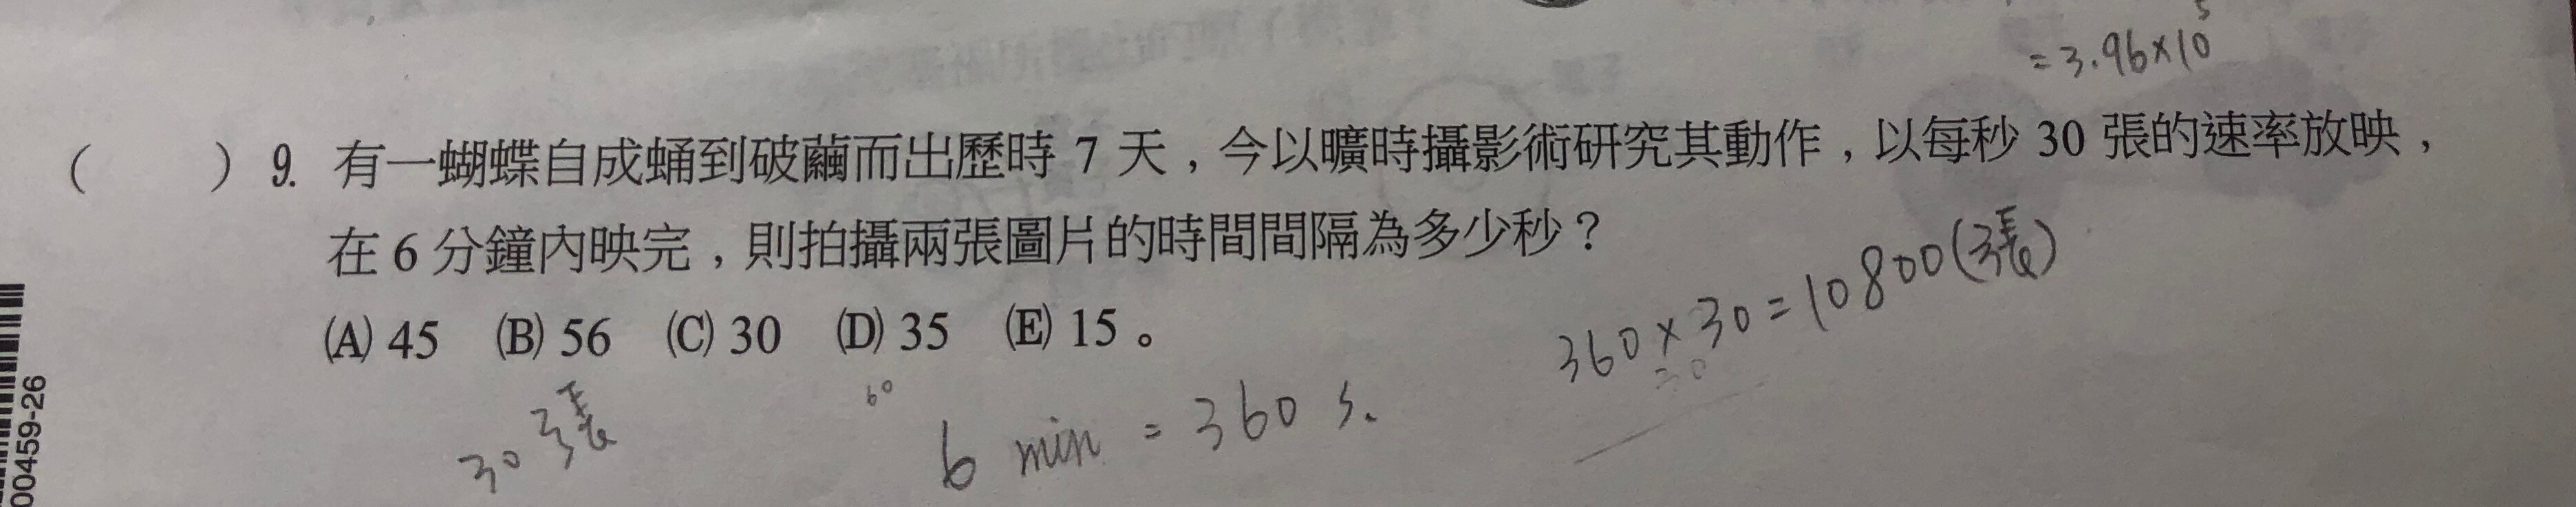 = 3.96×10⁵
( ) 9. 有一蝴蝶自成蛹到破繭而出歷時 7 天,今以曠時攝影術研究其動作,以每秒 30 張的速率放映,
在 6 分鐘內映完,則拍攝兩張圖片的時間間隔為多少秒?
360 × 30 = 10800(張)
(A) 45 (B) 56 (C) 30 (D) 35 (E) 15。
30 張
60
6 min = 360 s.
00459-26